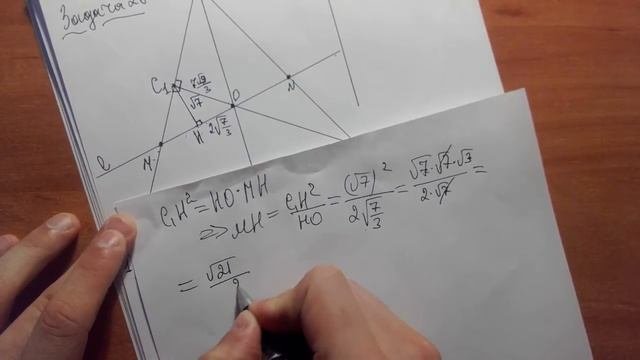 Задача 26
C₁
7√7/3
√7
O
N
H
2√(7/3)
M
ℓ
C₁H² = HO·MH
=> MH = C₁H²/HO = (√7)²/(2√(7/3)) = (√7·√7·√3)/(2·√7) =
= √21/2